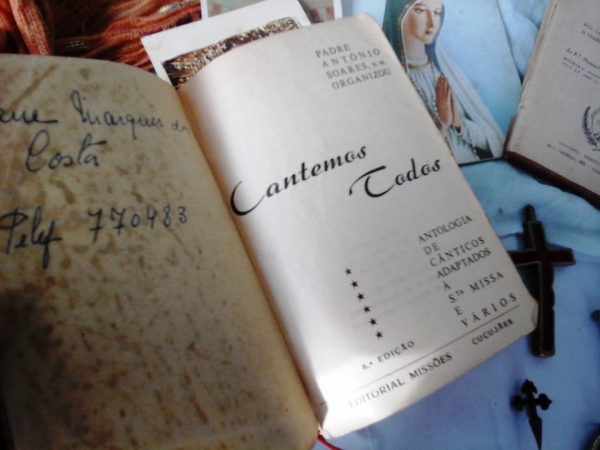 Marques da
Costa
Telf 770483
PADRE
ANTÓNIO
SOARES, S. M.
ORGANIZOU
Cantemos
Todos
ANTOLOGIA
DE
CÂNTICOS
ADAPTADOS
À
STA MISSA
E
VÁRIOS
6.ª EDIÇÃO
EDITORIAL MISSÕES CUCUJÃES